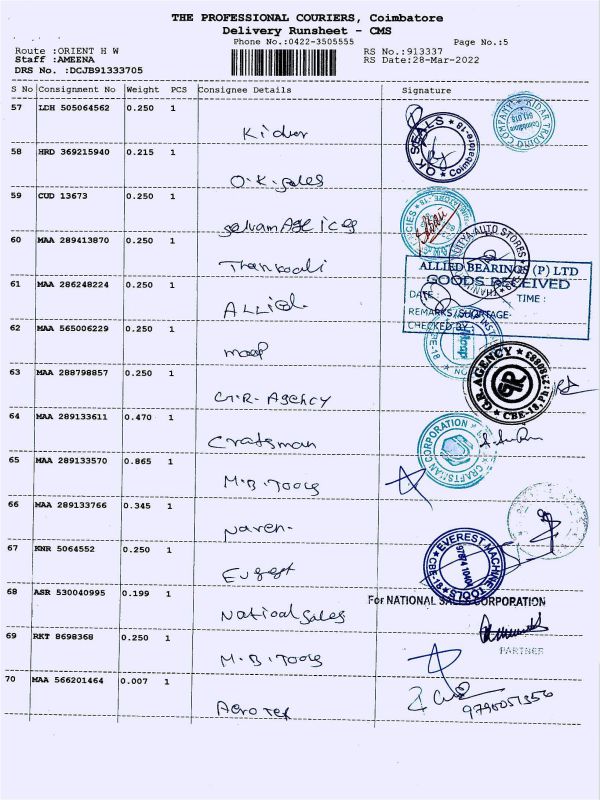 THE PROFESSIONAL COURIERS, Coimbatore
Delivery Runsheet - CMS
Phone No.:0422-3505555 Page No.:5
Route :ORIENT H W RS No.:913337
Staff :AMEENA RS Date:28-Mar-2022
DRS No. :DCJB91333705
S No Consignment No Weight PCS Consignee Details Signature
57 LDH 505064562 0.250 1
Kidar
KIDAR TRADING COMPANY
58 HRD 369215940 0.215 1
O.K. Sales
OK SEALS Coimbatore-18
59 CUD 13673 0.250 1
Selvam Agencies
60 MAA 289413870 0.250 1
AUTO STORES
61 MAA 286248224 0.250 1
ALLIED
ALLIED BEARINGS (P) LTD
GOODS RECEIVED
DATE : TIME :
REMARKS/SHORTAGE
CHECKED BY :
62 MAA 565006229 0.250 1
CBE-18
63 MAA 288798857 0.250 1
G.R. Agency
G.R. AGENCY CBE-18.
64 MAA 289133611 0.470 1
Craftsman
CRAFTSMAN CORPORATION
65 MAA 289133570 0.865 1
M.B. Tools
66 MAA 289133766 0.345 1
Naren
67 KNR 5064552 0.250 1
EVEREST MACHINE TOOLS CBE-18
68 ASR 530040995 0.199 1
National Sales
For NATIONAL SALES CORPORATION
PARTNER
69 RKT 8698368 0.250 1
M.B. Tools
70 MAA 566201464 0.007 1
Aerotex
9790051356